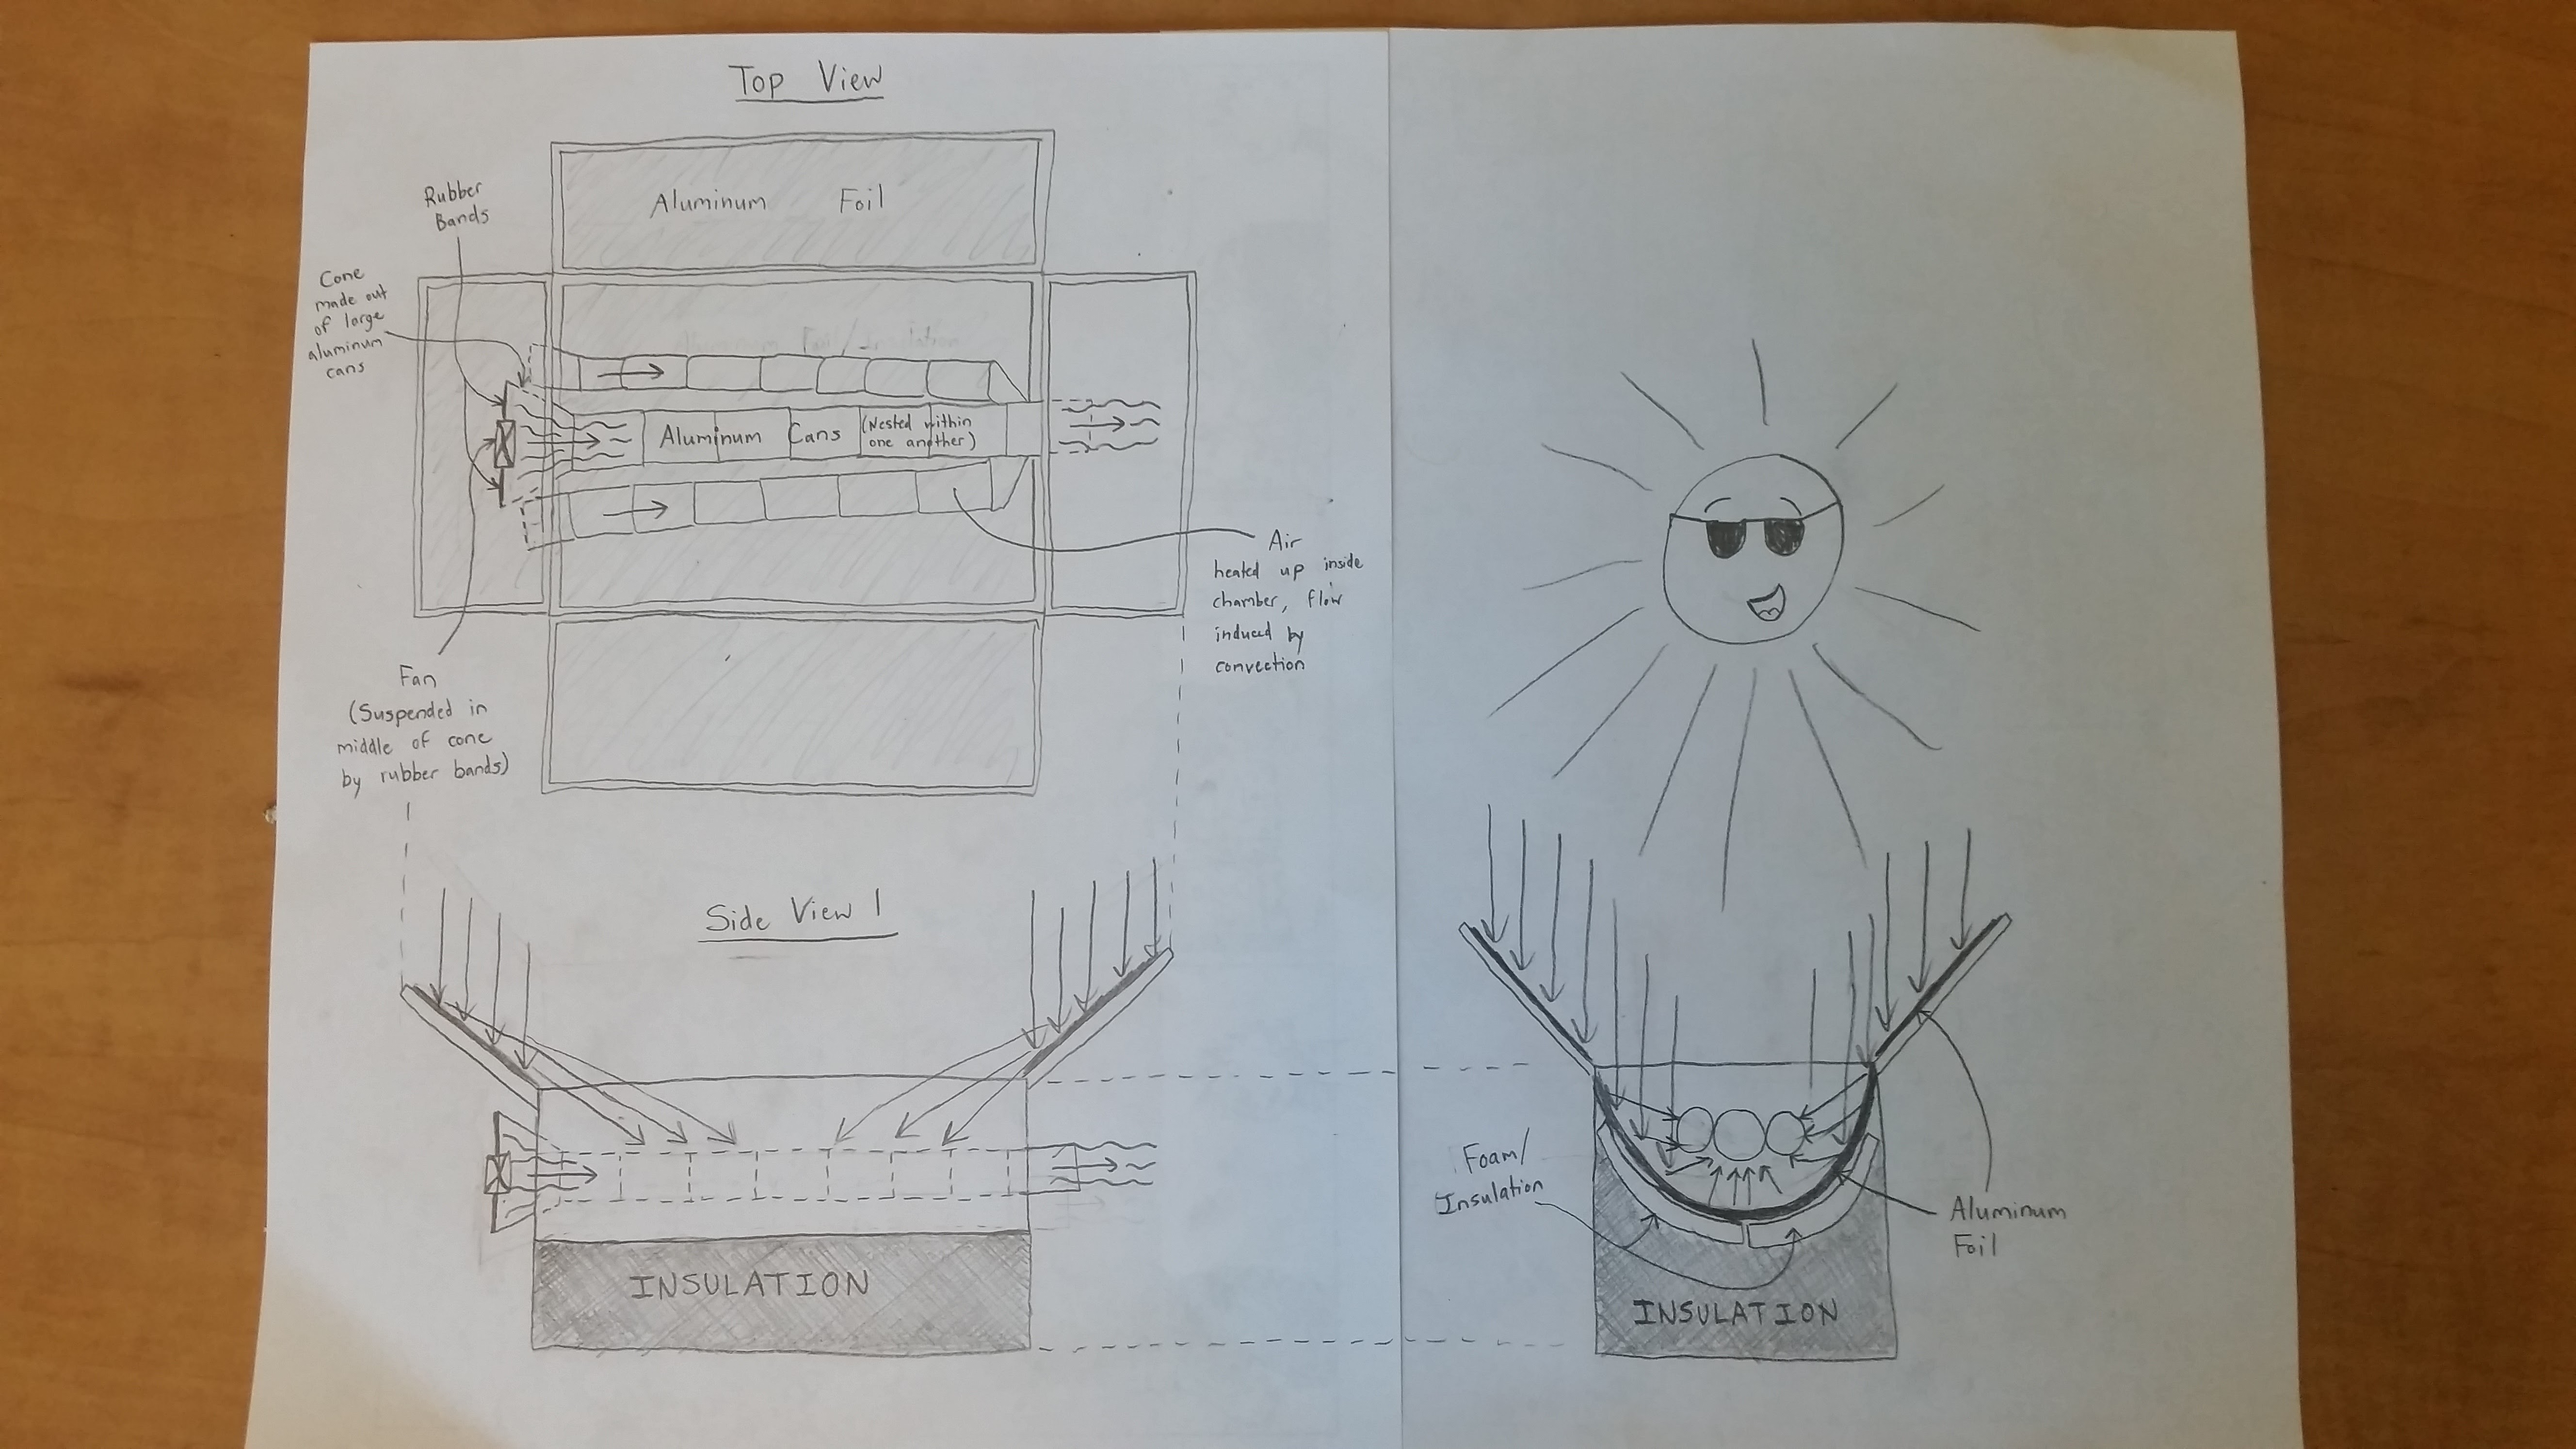 Top View
Rubber
Bands
Aluminum Foil
Cone
made out
of large
aluminum
cans
Aluminum Cans (Nested within
one another)
Air
heated up inside
chamber, flow
induced by
convection
Fan
(Suspended in
middle of cone
by rubber bands)
Side View 1
INSULATION
Foam/
Insulation
Aluminum
Foil
INSULATION